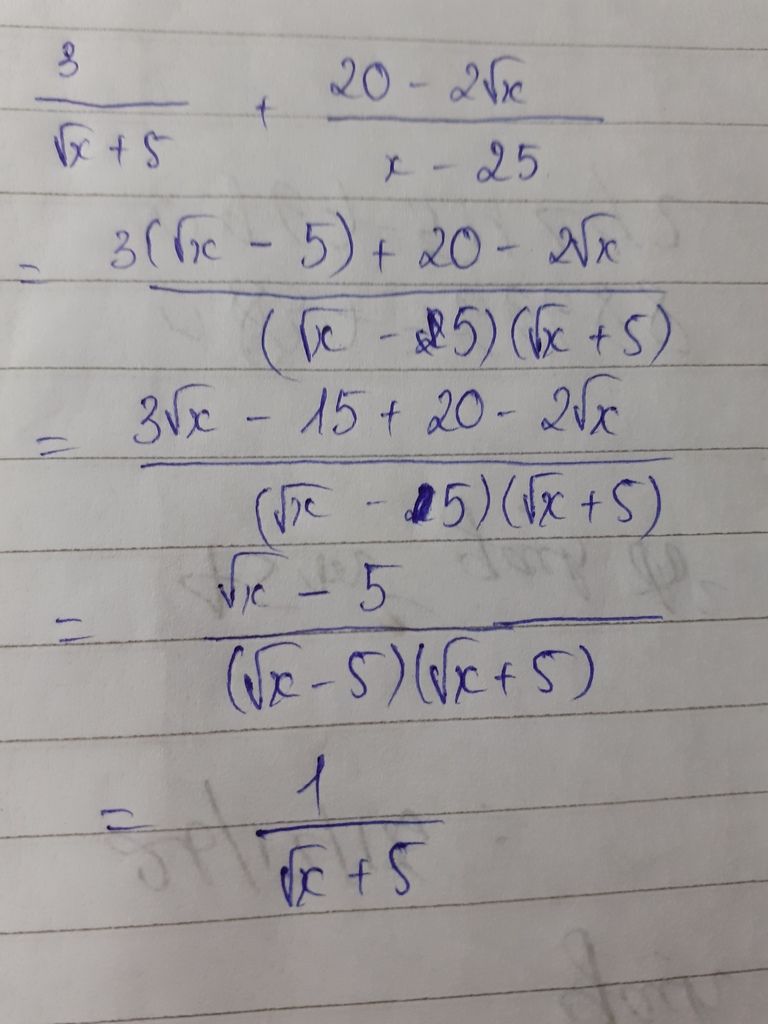 3/(√x + 5) + (20 - 2√x)/(x - 25)
= (3(√x - 5) + 20 - 2√x)/((√x - 5)(√x + 5))
= (3√x - 15 + 20 - 2√x)/((√x - 5)(√x + 5))
= (√x - 5)/((√x - 5)(√x + 5))
= 1/(√x + 5)